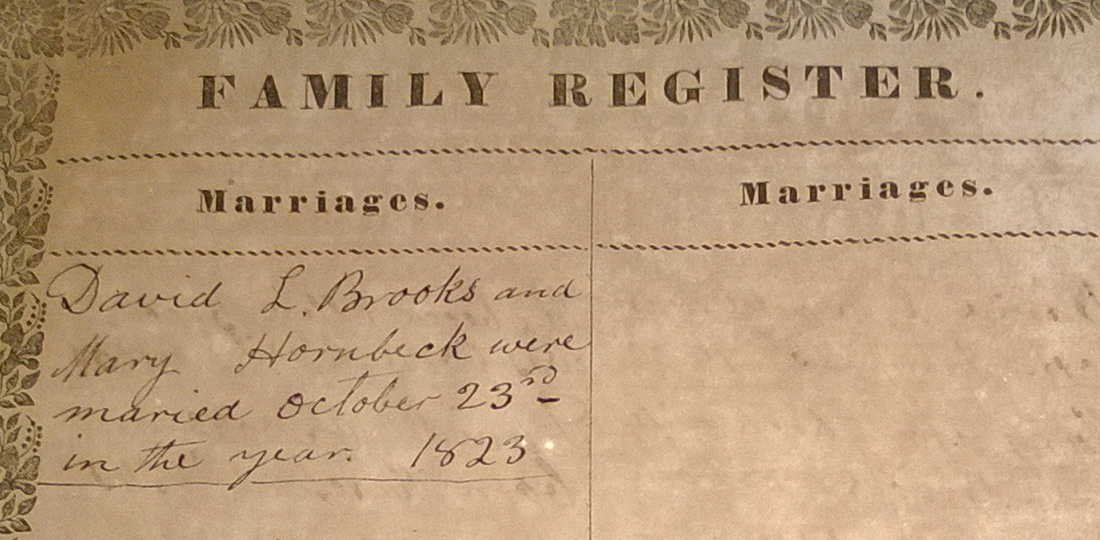 FAMILY REGISTER.
Marriages.
Marriages.
David L. Brooks and
Mary Hornbeck were
maried October 23rd
in the year. 1823